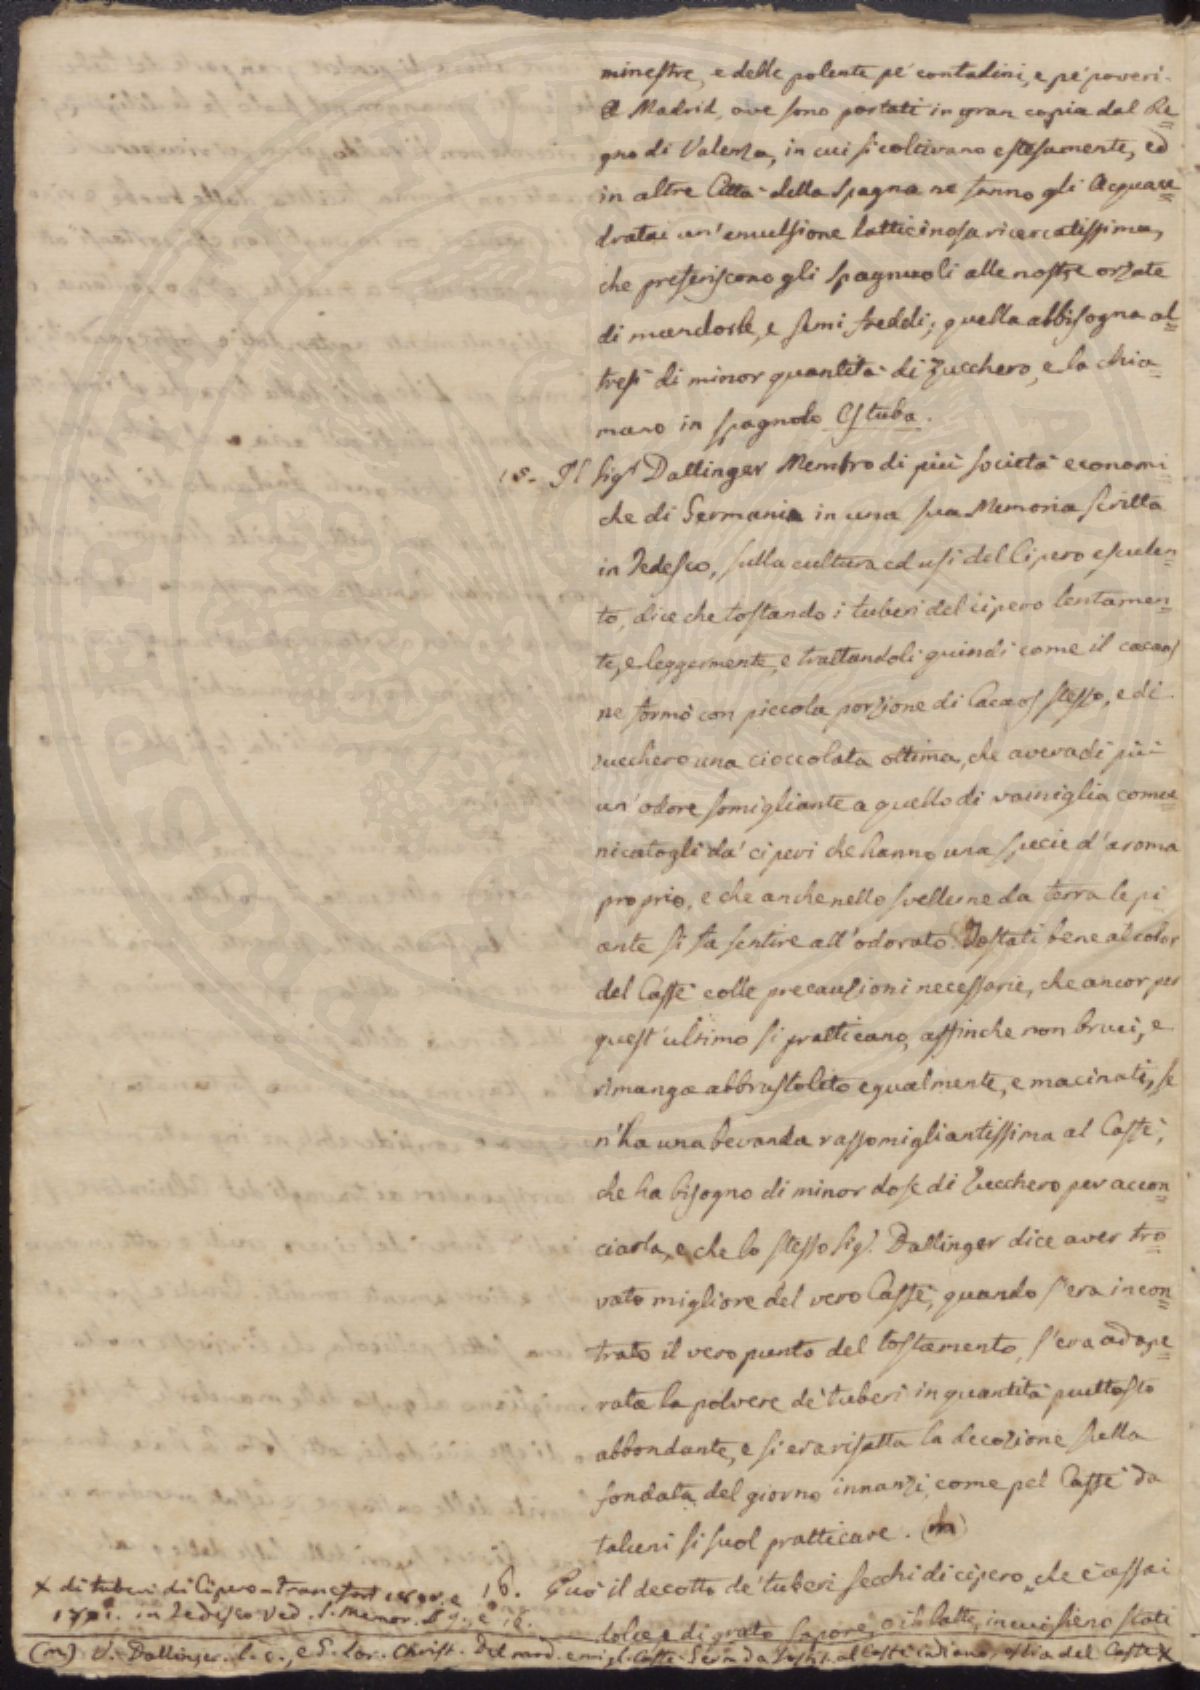 minestre, e delle polente pe' contadini, e pe' poveri.
A Madrid, ove sono portati in gran copia dal Re=
gno di Valenza, in cui si coltivano estesamente, ed
in altre Città della Spagna ne fanno gli Acquave=
dratai un' emulsione latticinosa ricercatissima,
che preferiscono gli Spagnuoli alle nostre orzate
di mandorle, e semi freddi; quella abbisogna al=
tresì di minor quantità di Zucchero, e la chia=
mano in spagnolo
15. Il Sigr Dallinger Membro di più società economi
che di Germania in una sua Memoria scritta
in Tedesco, sulla cultura ed usi del Cipero esculen=
to, dice che tostando i tuberi del cipero lentamen=
te, e leggermente, e trattandoli quindi come il cacaos
ne formò con piccola porzione di Cacaos stesso, e di
zucchero una cioccolata ottima, che aveva di più
un' odore somigliante a quello di vainiglia comu=
nicatogli da' ciperi che hanno una specie d'aroma
proprio, e che anche nello svellerne da terra le pi
ante si fa sentire all'odorato. Tostati bene al color
del Caffè colle precauzioni necessarie, che ancor per
quest' ultimo si pratticano, affinche non bruci, e
rimanga abbrustolito egualmente, e macinati, se
n'ha una bevanda rassomigliantissima al Caffè,
che ha bisogno di minor dose di Zucchero per accon=
ciarla, e che lo stesso Sigr. Dallinger dice aver tro=
vato migliore del vero Caffè, quando s'era incon=
trato il vero punto del tostamento, s'era adope=
rata la polvere de' tuberi in quantità piuttosto
abbondante, e si era rifatta la decozione sulla
fondata del giorno innanzi, come pel Caffè da
taluni si suol pratticare. (m)
16. Può il decotto de' tuberi secchi di cipero, che è assai
dolce, e di grato sapore, o il latte, in cui sieno stati
x di tuberi di Cipero - e
in Tedesco Ved. S. Memor.
(m) V. Dallinger. l. c., e Christ. al Caffè ossia del Caffè x